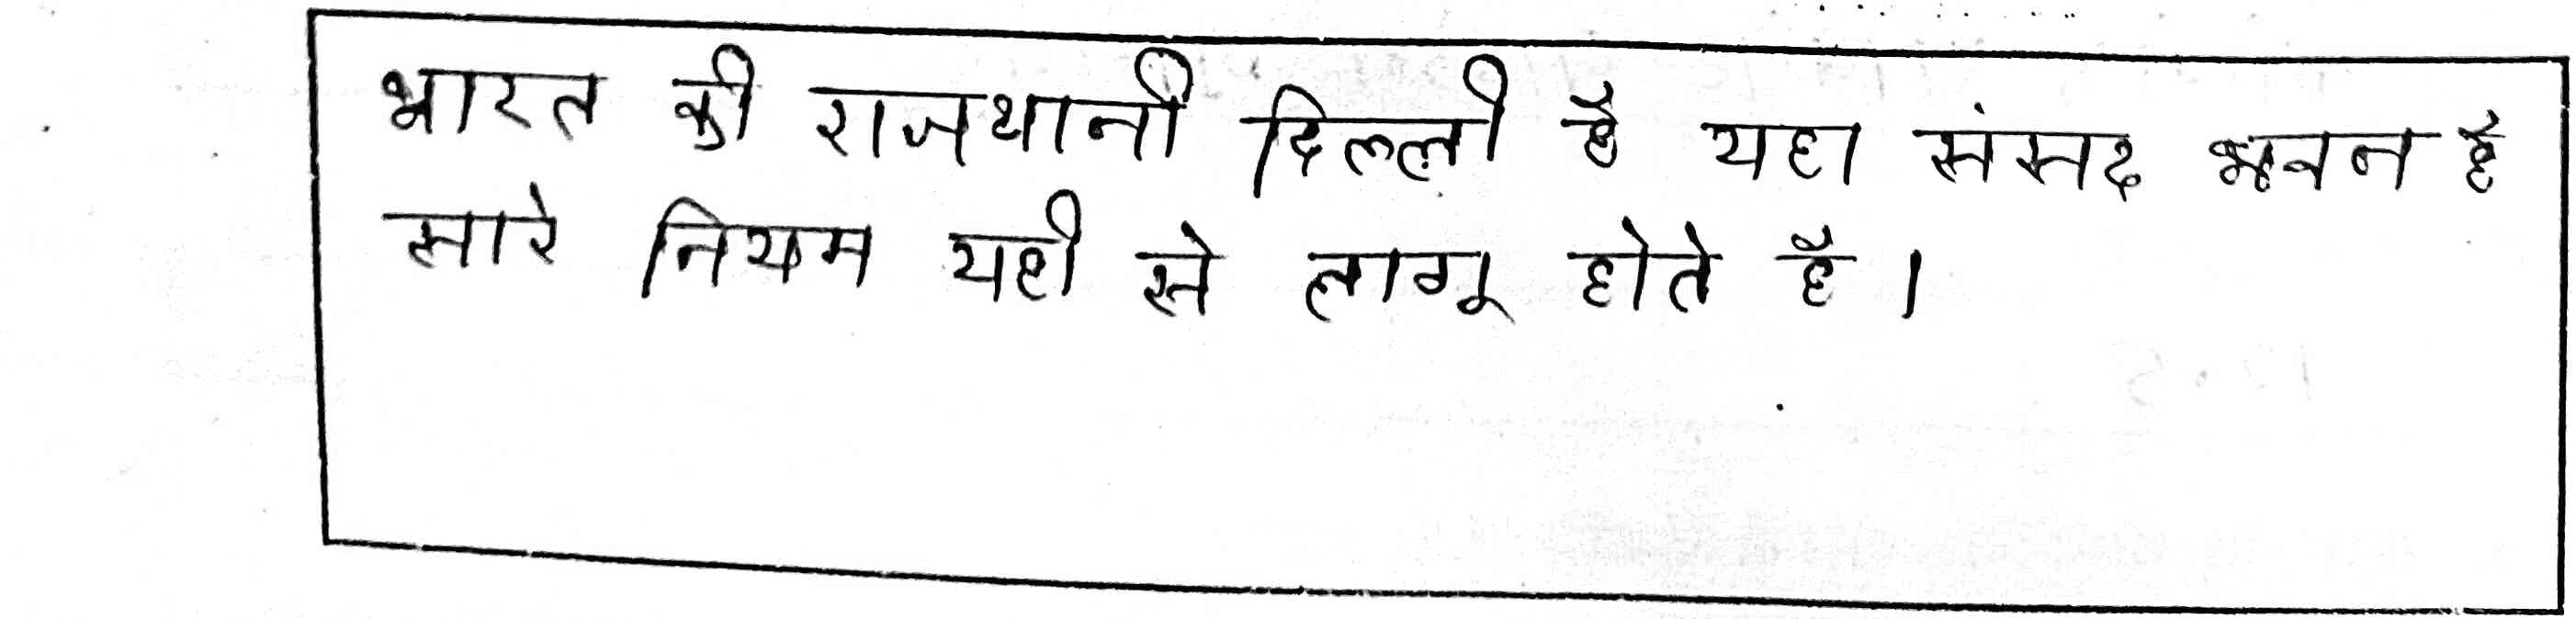 भारत की राजधानी दिल्ली है यहा संसद भवन है
सारे नियम यही से लागू होते है।